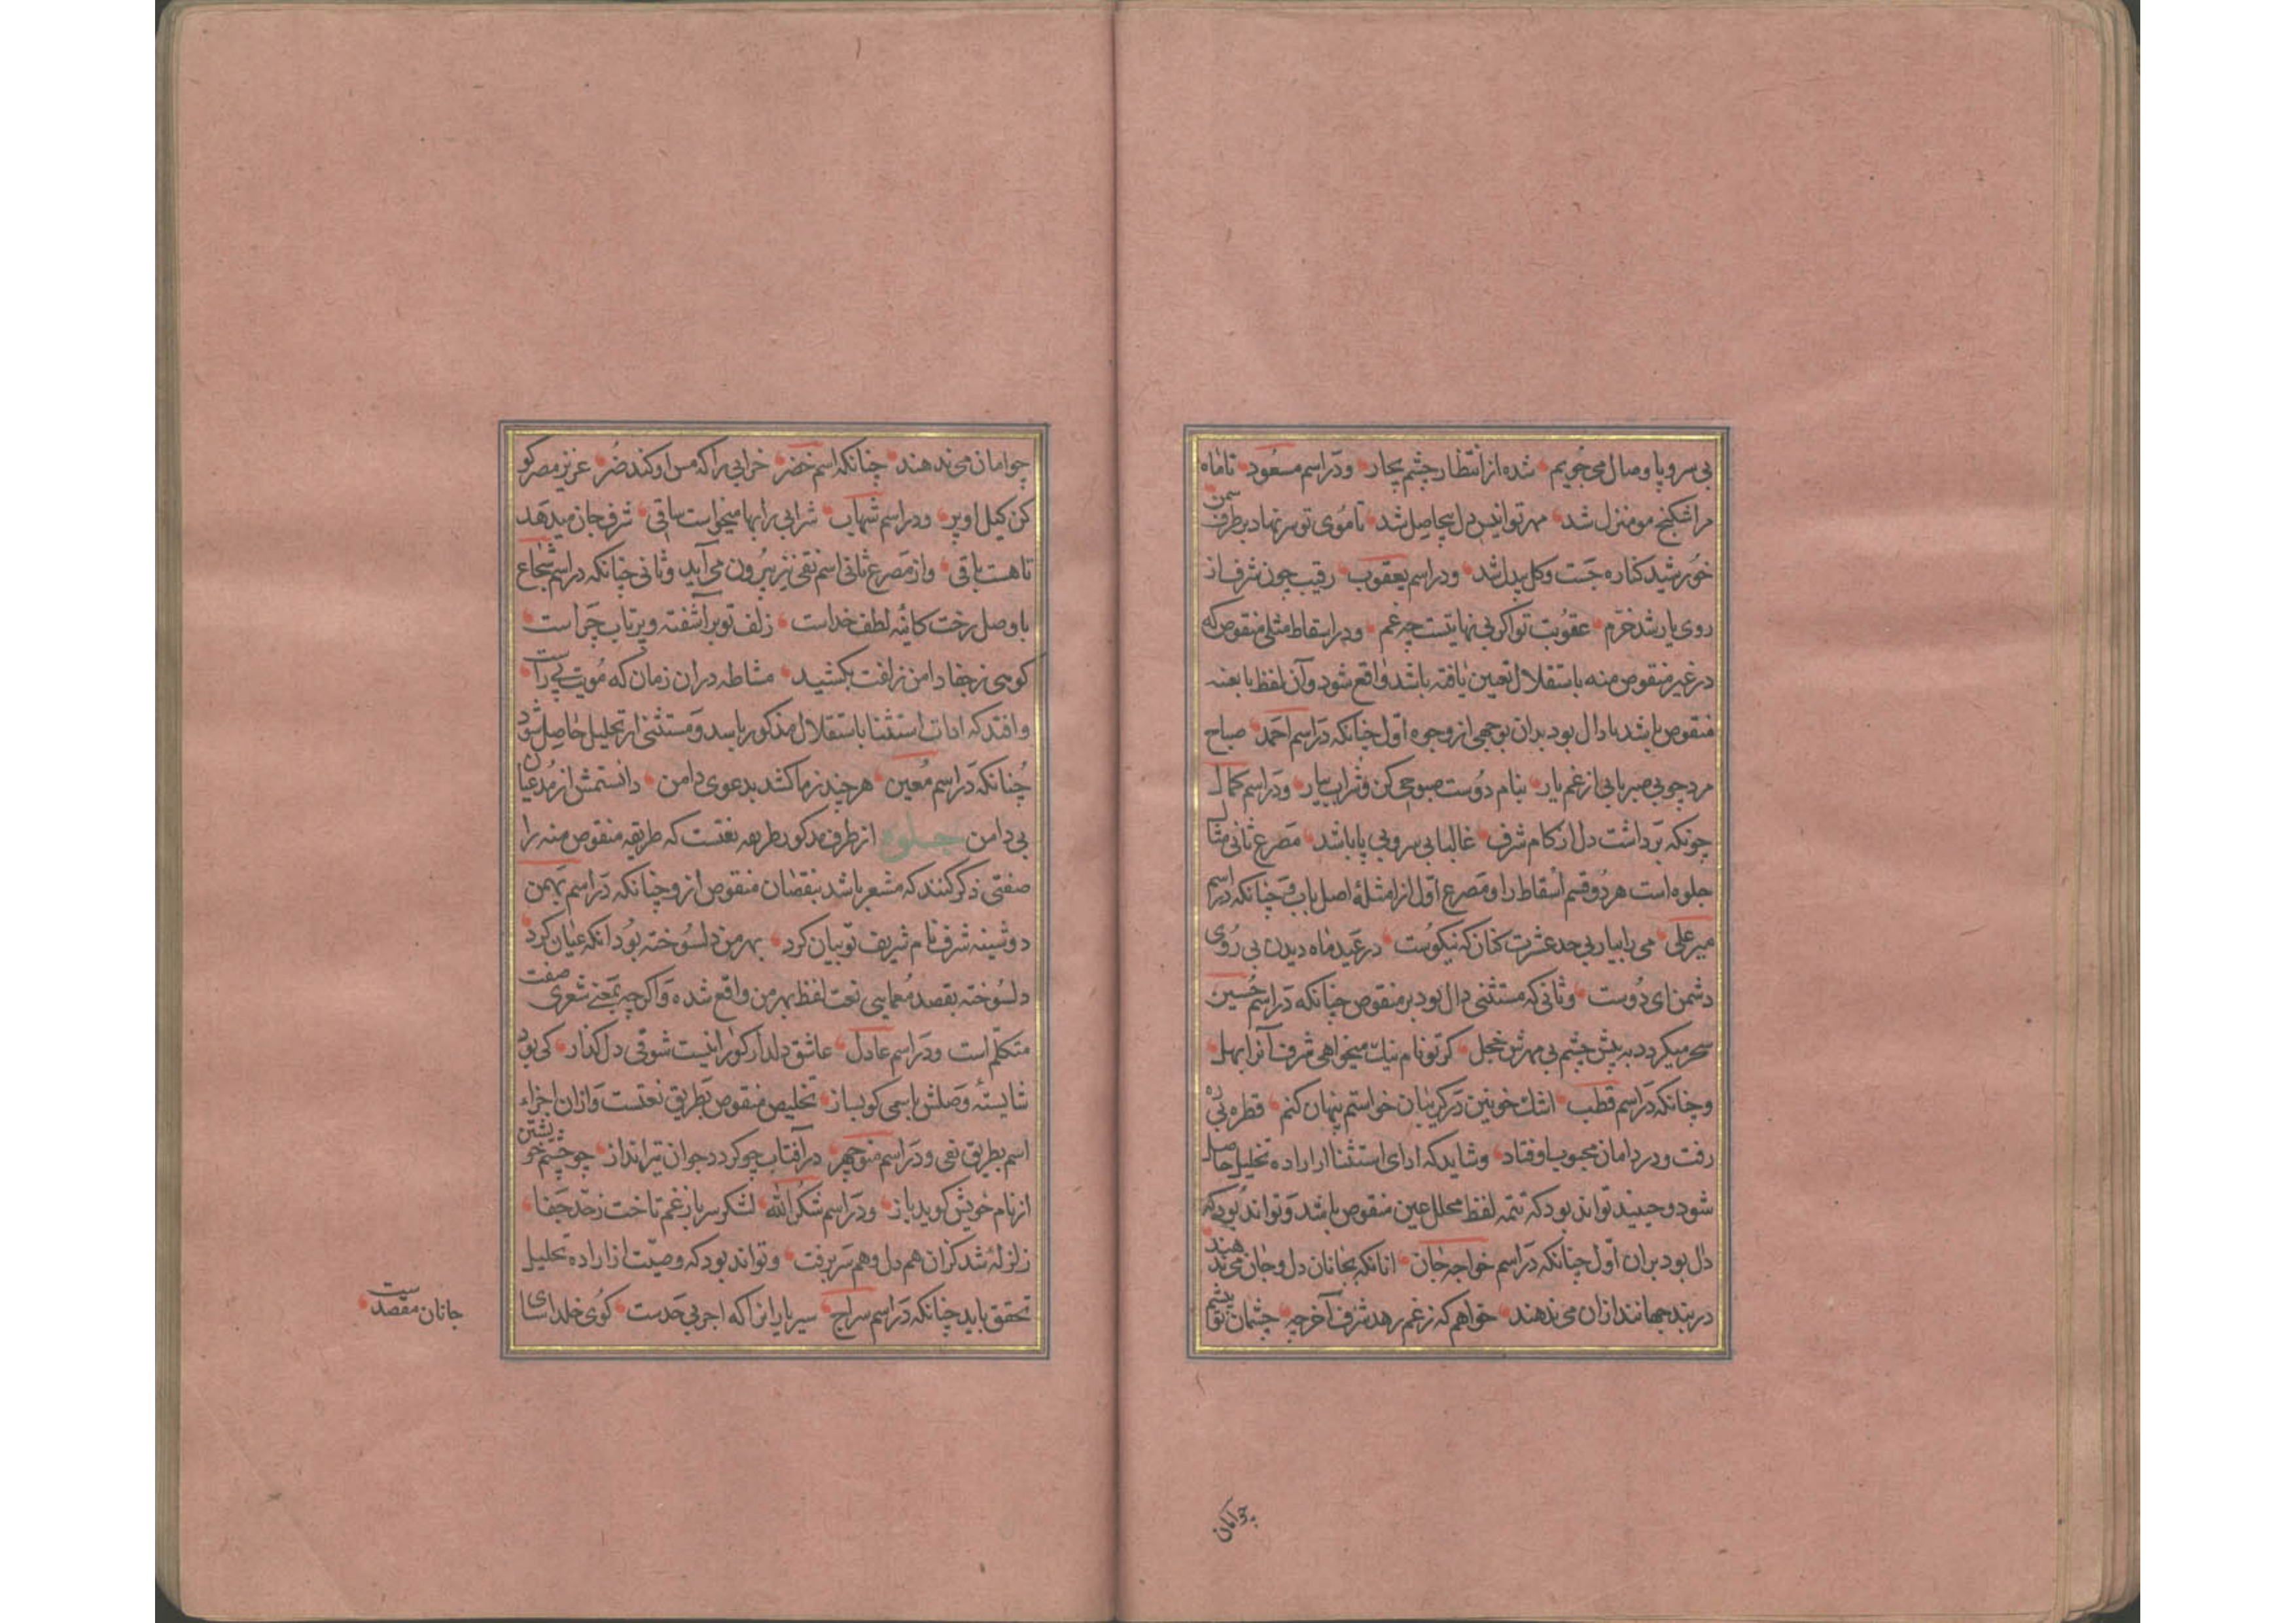 بی سر و پا وصال می جویم شده از انتظار چشم بچار و در اسم مسعود تا ماه
مرا شکنج مو منزل شد مهر تو انیس دل بیحاصل شد تا موی تو سر نهاد بر طرف سمن
خورشید کناره جست و کل بیدل شد و در اسم یعقوب رقیب چون شرف از
روی یار شد خرم عقوبت تو اکر بی نهایتست چه غم و در اسقاط مثلی منقوص که
در غیر منقوص منه باستقلال تعین یافته باشد واقع شود و آن لفظ یا بعینه
منقوص باشد یا دال بود بدان بوجهی از وجوه اول چنانکه در اسم احمد صباح
مرد چو بی صبر یابی از غم یار بنام دوست صبوحی کن و شراب بیار و در اسم کمال
چونکه برداشت دل ز کام شرف غالبا بی سر و بی پا باشد مصرع ثانی مثال
جلوه است هر دو قسم اسقاط را و مصرع اول از امثلهٔ اصل باب و چنانکه در اسم
میر علی می را بیار بی حد عشرت کنان که نیکوست در عید ماه دیدن بی روی
دشمن ای دوست و ثانی که مستثنی دال بود بر منقوص چنانکه در اسم حسین
سحر میکردد به پیش چشم بی مهرش خجل کر تو نام نیک میخواهی شرف آنرا بهل
و چنانکه در اسم قطب اشک خونین در کریبان خواستم پنهان کنم قطره بی ره
رفت و در دامان محبوب اوفتاد و شاید که ادای استثنا از اراده تحلیل حاصل
شود و حینئذ تواند بود که تتمه لفظ محلل عین منقوص باشد و تواند بود که
دال بود بران اول چنانکه در اسم خواجه جان انانکه بجانان دل و جان می ندهند
در بند جهانند ازان می ندهند خواهم که ز غم رهد شرف آخر چه چشمان تو
چو امان
چو امان می ندهند چنانکه اسم خضر خرابی را که مس او کند ضر عزیز مصر کو
کن کیل او پر و در اسم شهاب شرابی را بها میخواست ساقی شرف جان میدهد
تا هست باقی و از مصرع ثانی اسم نقی نیز بیرون می آید و ثانی چنانکه در اسم شجاع
با وصل رخت کائینه لطف خداست زلف تو بر آشفته و پر تاب چراست
کوهی ز جفا دامن زلفت بکشید مشاطه دران زمان که مویت می آراست
و افتد که ادات استثنا باستقلال مذکور باشد و مستثنی از تحلیل حاصل شود
چنانکه در اسم معین هر چند ز ما کشد بدعوی دامن دانستمش از مدعیان
بی دامن جلوه از طرف مذکور طریقه نعتست که طریقه منقوص منه را
صفتی ذکر کنند که مشعر باشد بنقصان منقوص ازو چنانکه در اسم بهمن
دوشینه شرف نام شریف تو بیان کرد بهر من دلسوخته بود انکه عیان کرد
دلسوخته بقصد معمایی نعت لفظ بهر من واقع شده و اکر چه بمعنی شعری صفت
متکلم است و در اسم عادل عاشق دلدار کورا نیست شوقی دل کدار کی بود
شایستهٔ وصلش باسمی کو بساز تخلیص منقوص بطریق نعتست و ازان اجزاء
اسم بطریق نفی و در اسم منوچهر در آفتاب چو کردد جوان تیرانداز چو چشم خویشتن
از نام خویش کوید باز و در اسم شکرالله لشکر سر باز غم تا خت ز حد جفا
زلزله شد کزان هم دل و هم سر برفت و تواند بود که وصیت از اراده تحلیل
تحقق یابد چنانکه در اسم سراج سیر یار انرا که اجر بی حدست کوی خلد اسای
جانان مقصدست